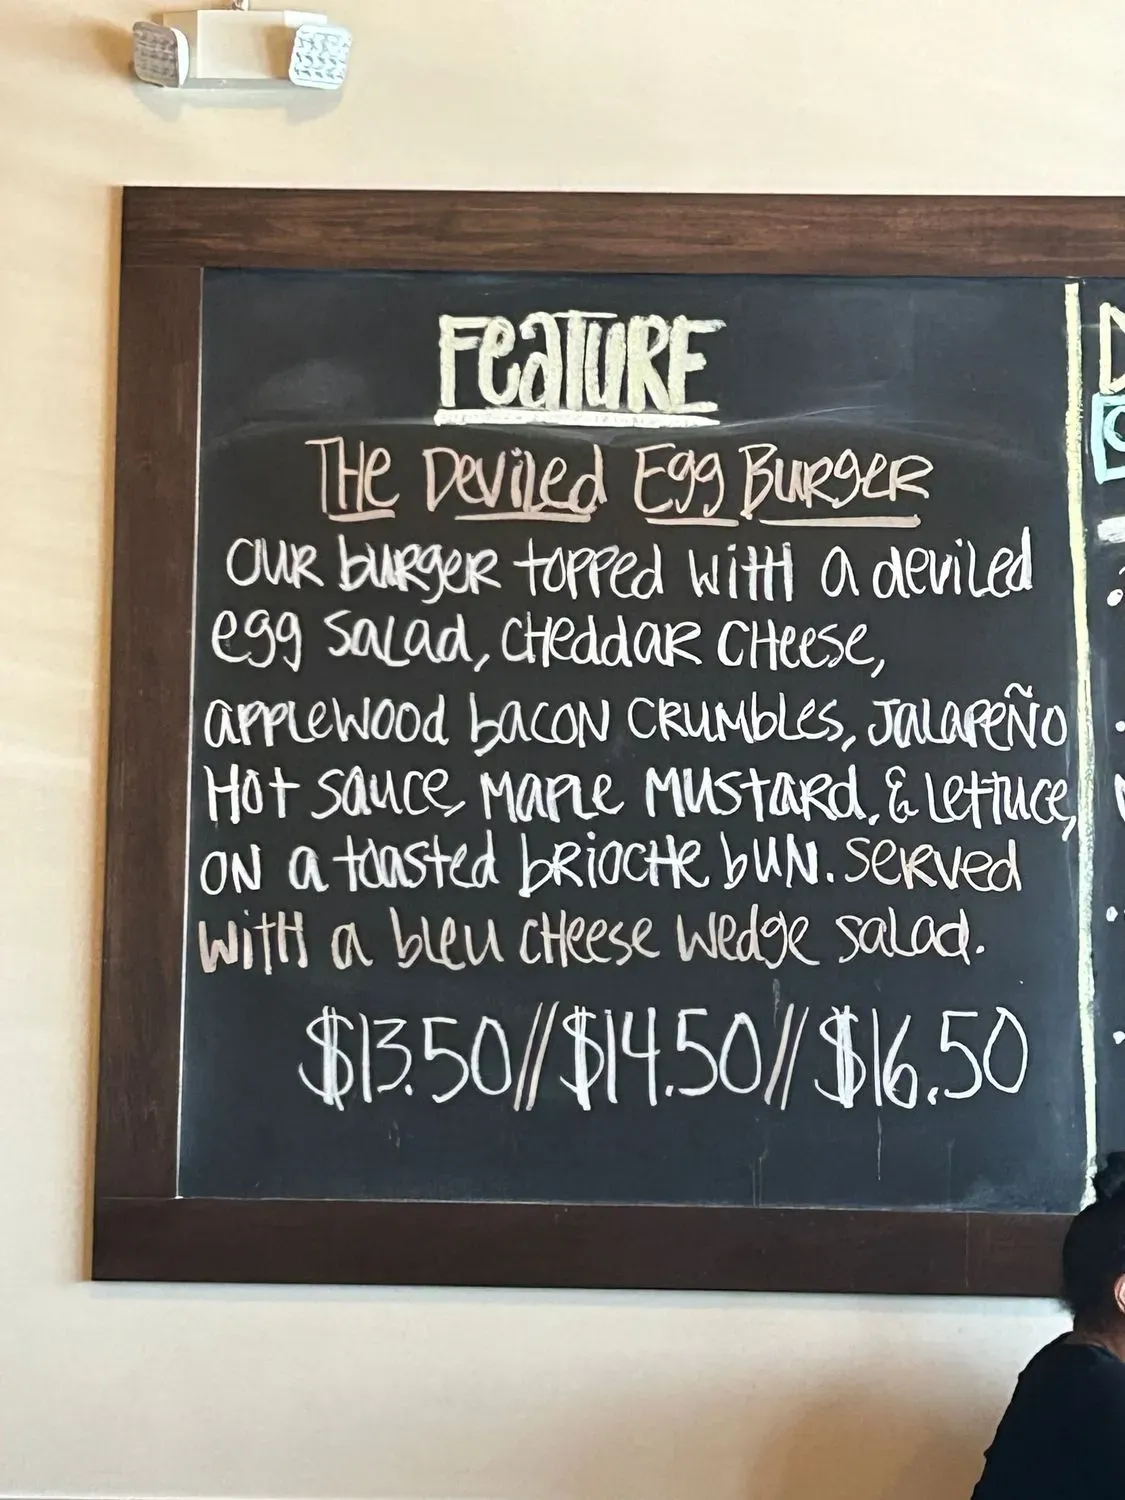 FeaTURE
THe DeViLed Egg BURgeR
OUR bURgeR topped WitH a deviled
egg Salad, CHeddaR CHeese,
appleWood bacoN CRUMbles, JalapeÑo
Hot Sauce, Maple MUStaRd, & Lettuce,
oN a toasted bRiocHe bUN. SeRved
WitH a bleu CHeese Wedge Salad.
$13.50//$14.50//$16.50